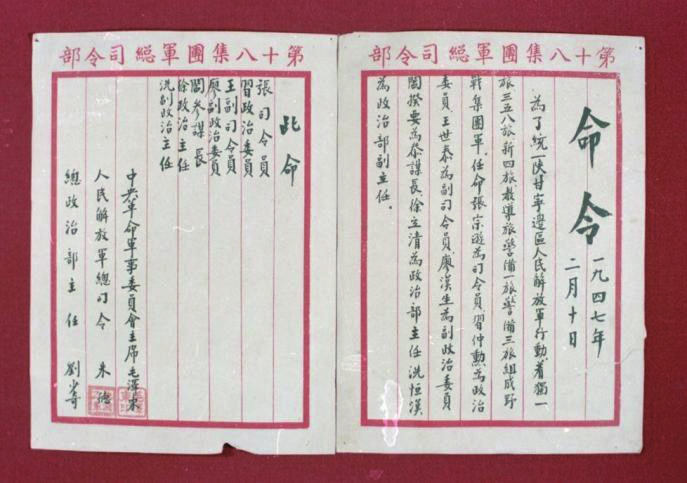 第十八集團軍總司令部
命令
一九四七年
二月十日
為了統一陝甘寧邊區人民解放軍行動,着獨一
旅三五八旅新四旅教導旅警備一旅警備三旅組成野
戰集團軍.任命張宗遜為司令員習仲勳為政治
委員王世泰為副司令員廖漢生為副政治委員
閻揆要為參謀長徐立清為政治部主任冼恒漢
為政治部副主任.
第十八集團軍總司令部
此命
張司令員
習政治委員
王副司令員
廖副政治委員
閻參謀長
徐政治主任
冼副政治主任
中央革命軍事委員會主席毛澤東
人民解放軍總司令 朱德
總政治部主任 劉少奇